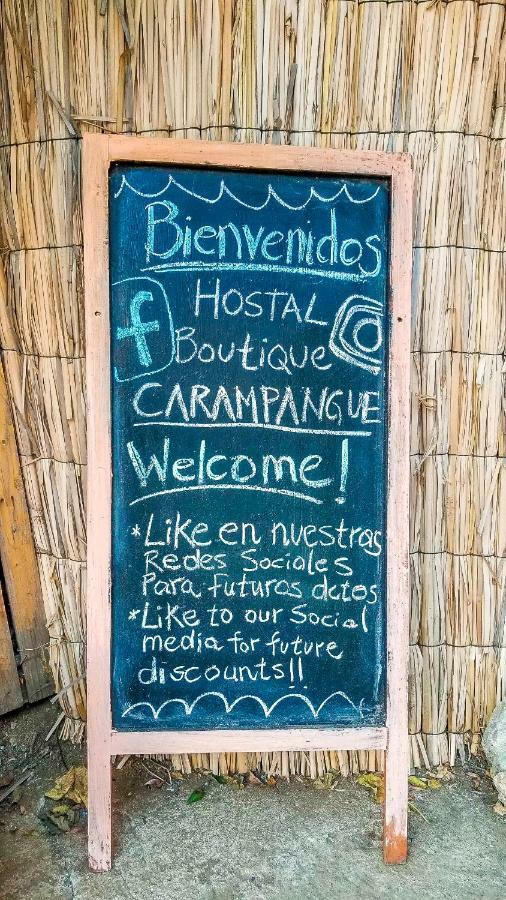 Bienvenidos
HOSTAL
f
Boutique
CARAMPANGUE
Welcome!
*Like en nuestras
Redes Sociales
Para futuros dctos
*Like to our Social
media for future
discounts!!